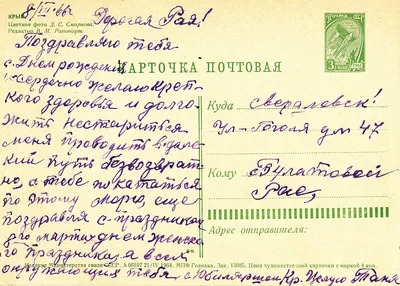 КРЫМ
Цветное фото Д. С. Смирнова.
Редактор В. М. Рапопорт.
Рая!
Поздравляю тебя
с Днем рождения
сердечно желаю креп-
кого здоровья и долго
жить не стариться
меня проводить в дале-
кий путь безвозврат-
но, а тебе покататься
по этому морю, еще
поздравляю с праздником
8го марта днем женско-
го праздника и всем
окружающих тебя с Юбилярном Кр. Целую Таня
КАРТОЧКА ПОЧТОВАЯ
СССР
ПОЧТА
3
Куда Свердловск!
Ул-Гоголя дом 47
Кому Булатовой
Рае,
Адрес отправителя:
Издание Министерства связи СССР. А 08107 21/IV 1964. МПФ Гознака. Зак. 13085. Цена художественной карточки с маркой 4 коп.